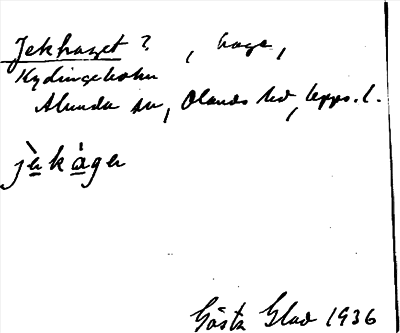 Jekhaget ? , hage,
Kydingeholm
Alunda sn, Olands hd, Upps. l.
jèkáger
Gösta Glad 1936